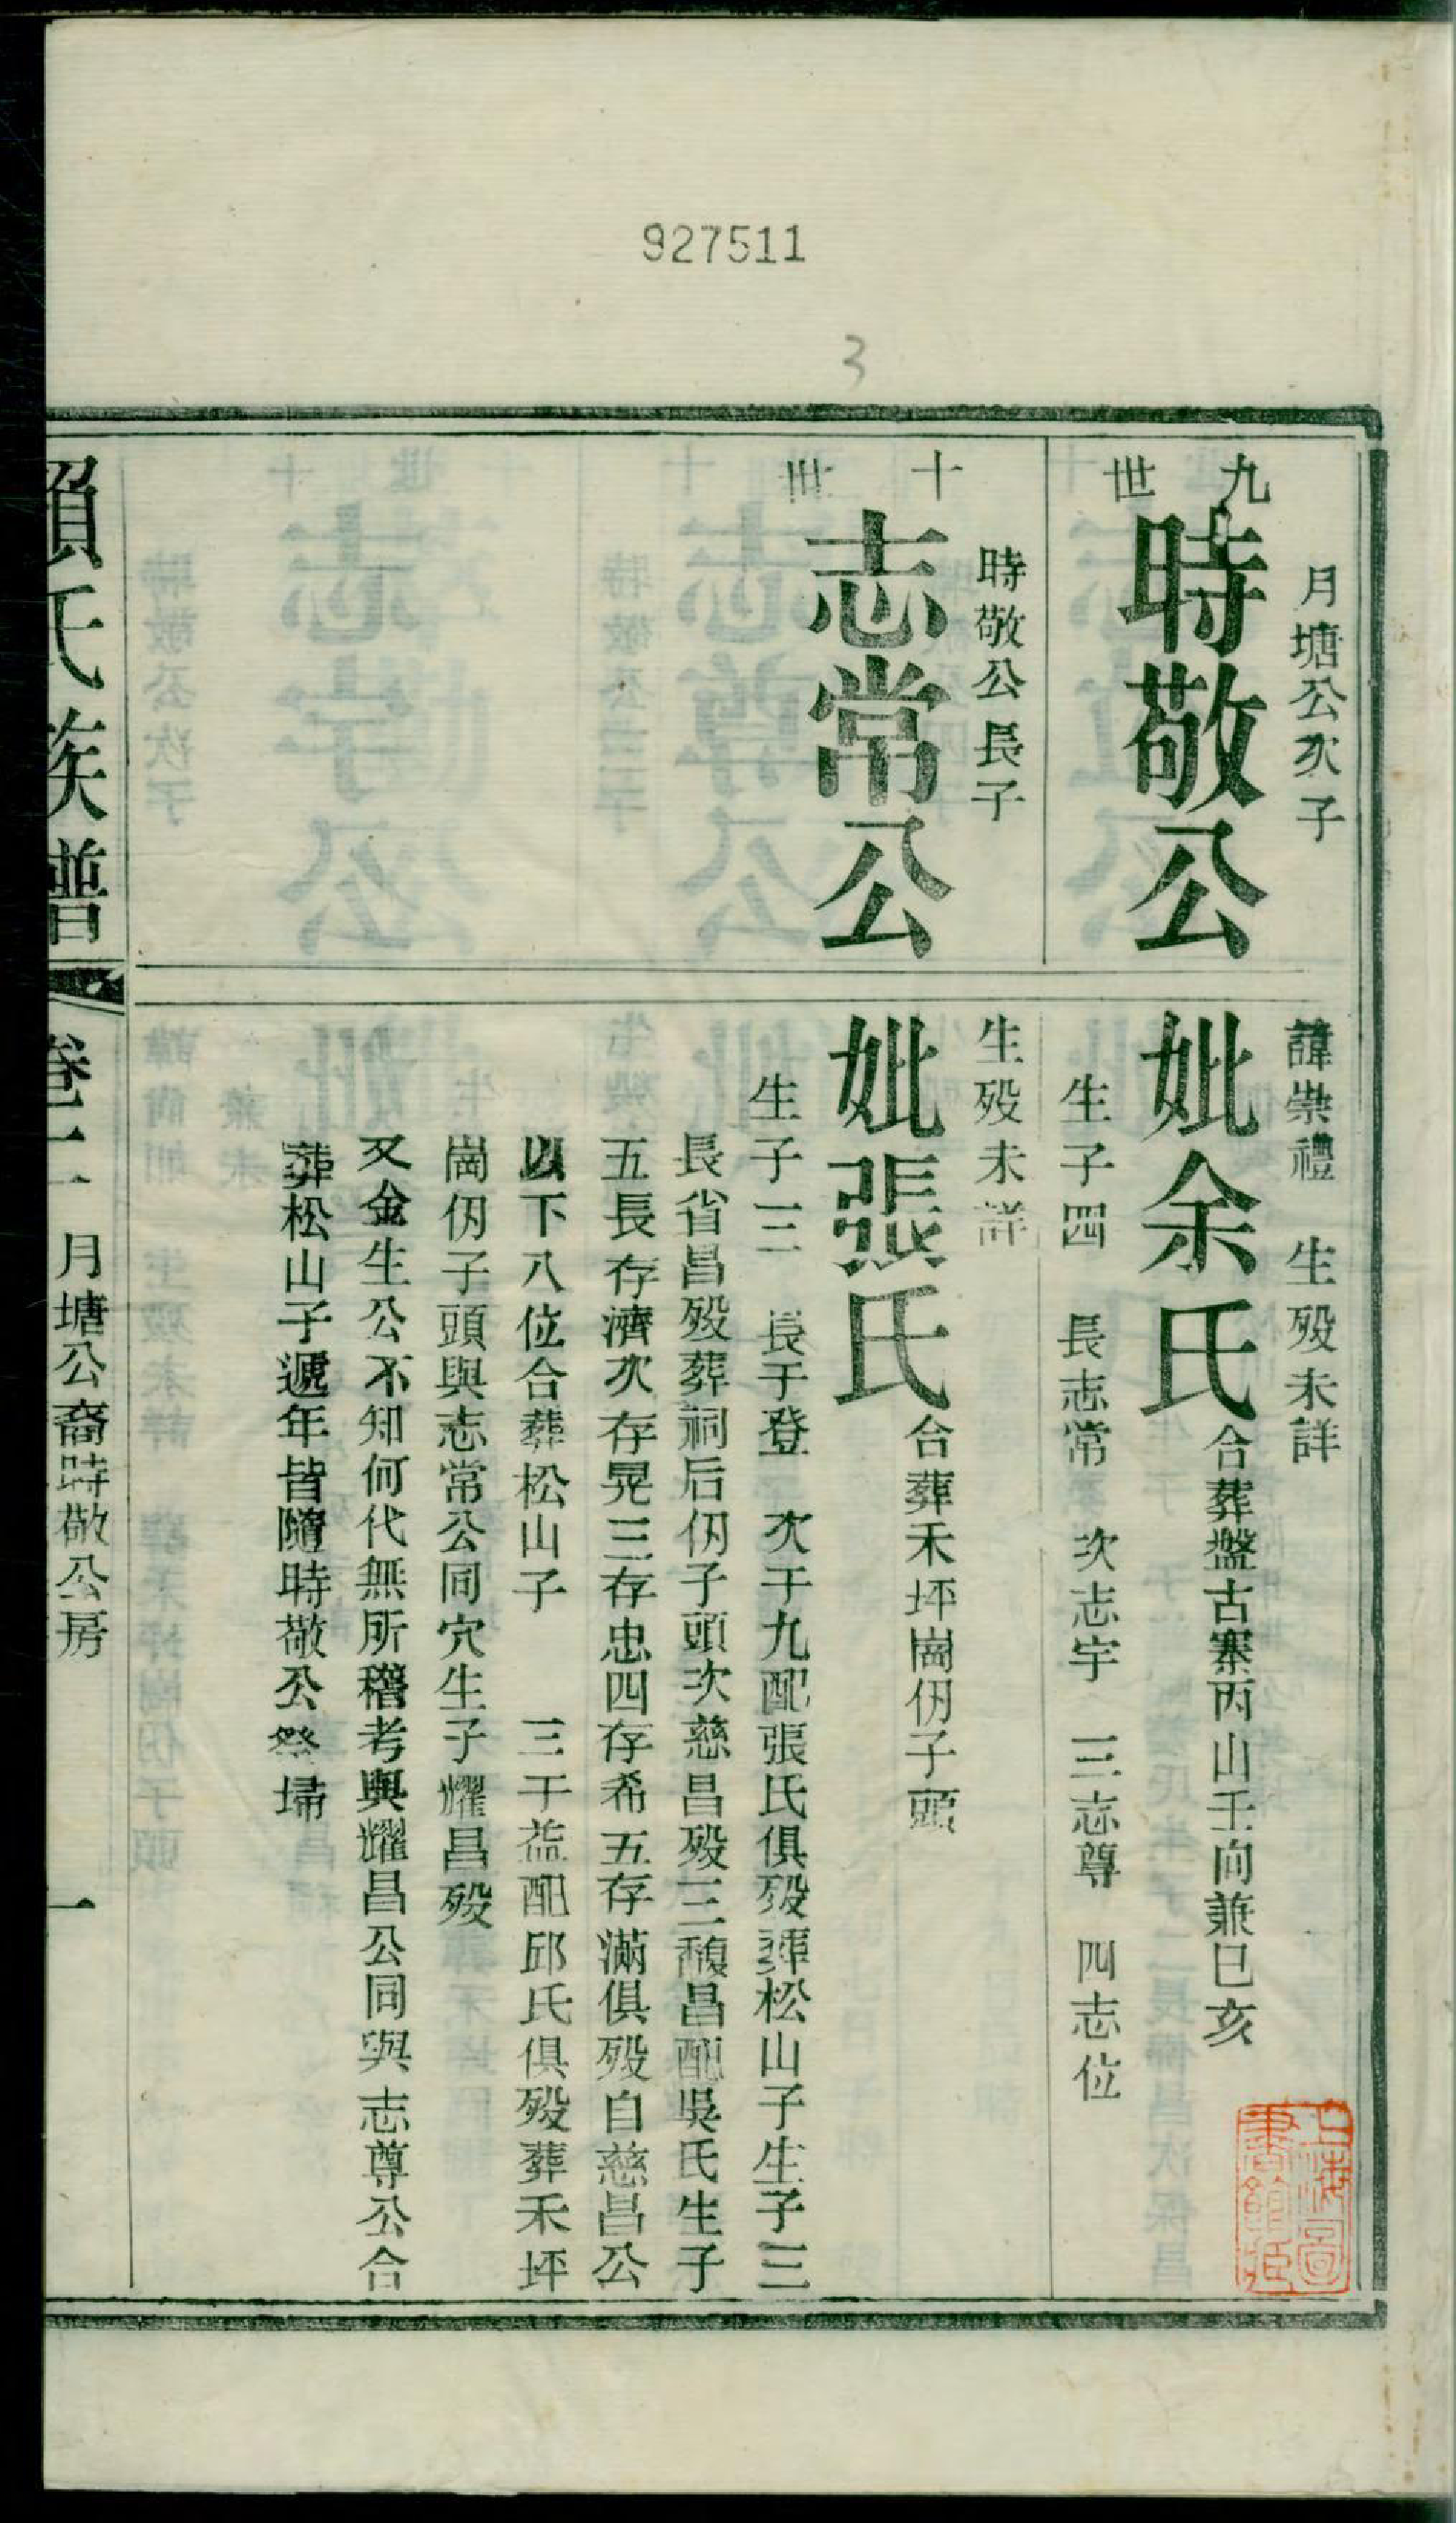 927511
3
九世
月塘公次子
時敬公
諱崇禮 生歿未詳
妣余氏 合葬盤古寨丙山壬向兼巳亥
生子四 長志常 次志宇 三志尊 四志位
十世
時敬公長子
志常公
生歿未詳
妣張氏 合葬禾坪崗份子頭
生子三 長于登 次于九配張氏俱歿葬松山子生子三
長省昌歿葬祠后份子頭次慈昌歿三馥昌配吳氏生子
五長存濟次存晃三存忠四存希五存滿俱歿自慈昌公
以下八位合葬松山子 三于益配邱氏俱歿葬禾坪
崗份子頭與志常公同穴生子耀昌歿
又金生公不知何代無所稽考與耀昌公同與志尊公合
葬松山子遞年皆隨時敬公祭掃
賴氏族譜 卷二 月塘公裔時敬公房 一
上海圖書館藏